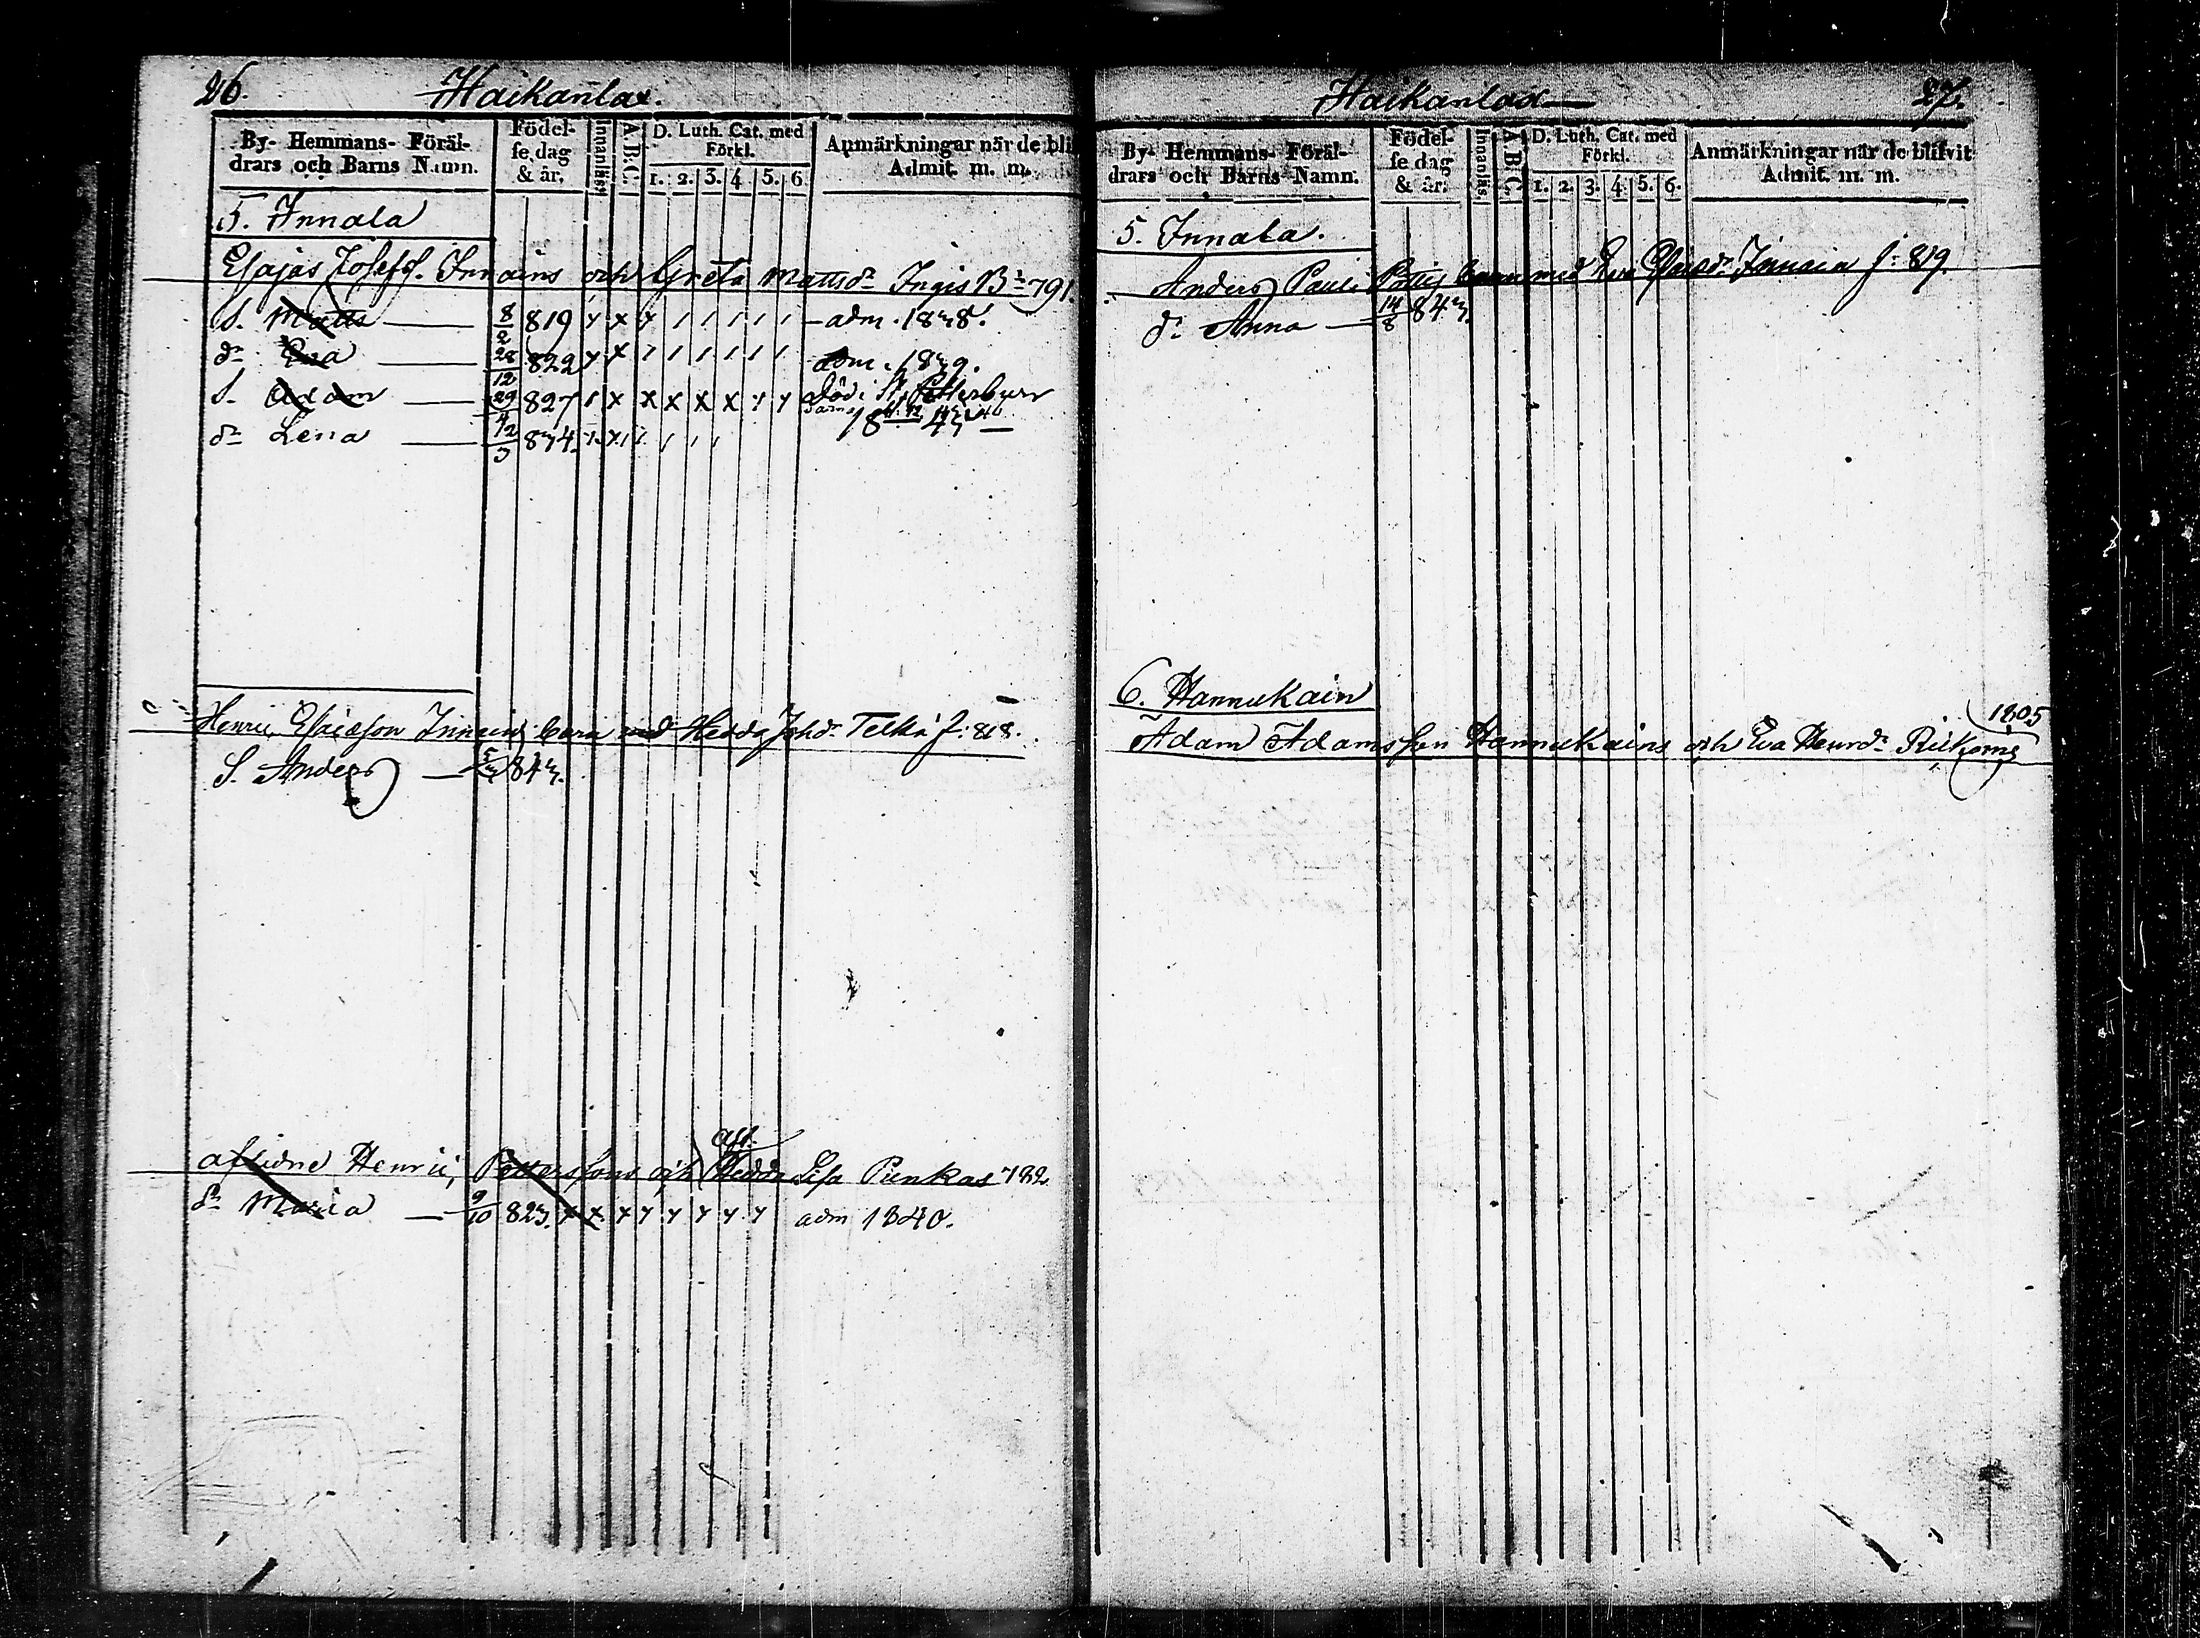 26. Haikanlax.
By- Hemmans- Föräl-
drars och Barns Namn.
Födel-
se dag
& år.
Innanläs.
A.B.C.
D. Luth. Cat. med
Förkl.
1. 2. 3. 4 5. 6
Anmärkningar när de bli
Admit. m. m.
5. Innala
Esajas Josefs. Innains och Greta Mattsdr Ingis 791.
S. Matts — 8/2 819 adm. 1838.
dr Eva — 28/12 822 adm. 1839.
S. Adam — 29/4 827 död i St. Petterburg
dr Lena — 12/3 834.
Henric Esaiesson Innains barn med Hedda Johdr Telkä f. 818.
S. Anders — 843.
aflidne Henric Pettersons och Hedda Lisa Punkas 782
dr Maria — 9/10 823. adm 1840.
Haikanlax — 27.
By- Hemmans- Föräl-
drars och Barns Namn.
Födel-
se dag
& år.
Innanläs.
A.B.C.
D. Luth. Cat. med
Förkl.
1. 2. 3. 4. 5. 6.
Anmärkningar när de blifvit
Admit. m. m.
5. Innala.
Anders Pauls. barn med Eva Esaiedr Innain f. 819.
dr Anna — 14/8 843.
6. Hannukain
1805
Adam Adamsson Hannukains och Eva Henrdr